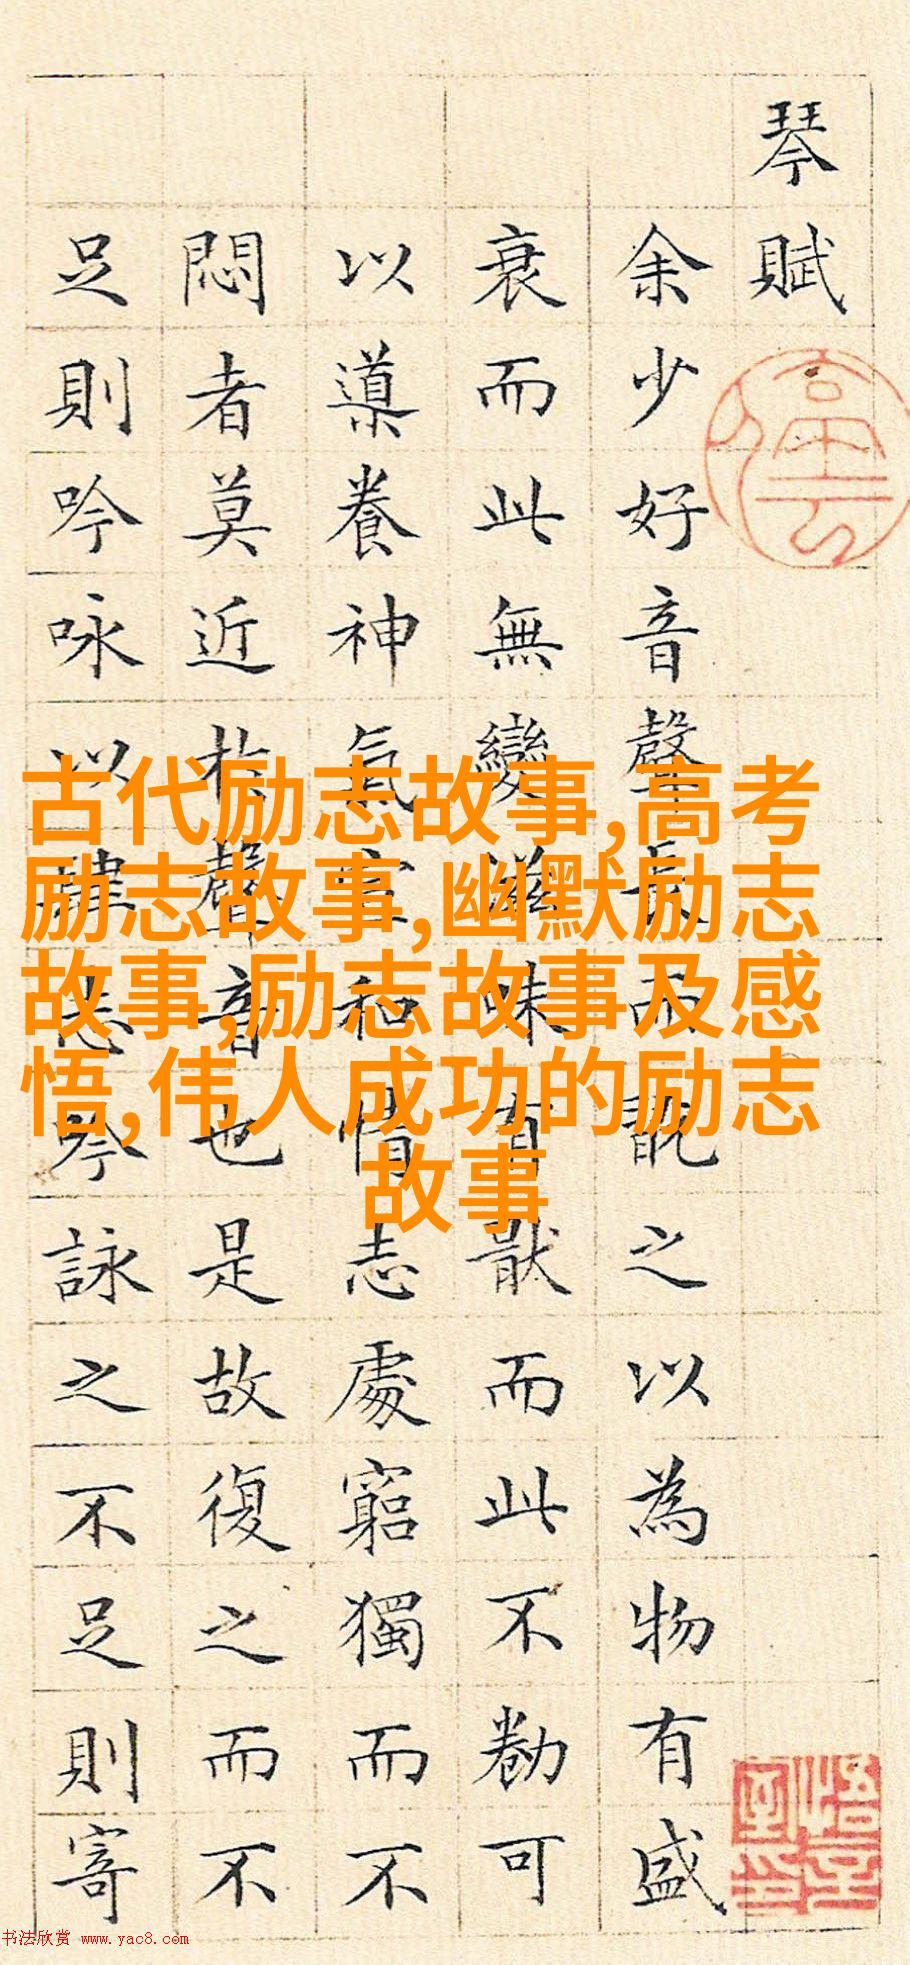 琴賦
余少好音聲長而翫之以為物有盛
衰而此無變滋味有猒而此不勌可
以導養神氣宣和情志處窮獨而不
悶者莫近於聲音也是故復之而不
足則吟咏以肆志吟詠之不足則寄
古代励志故事,高考
励志故事,幽默励志
故事,励志故事及感
悟,伟人成功的励志
故事
书法欣赏 www.yac8.com